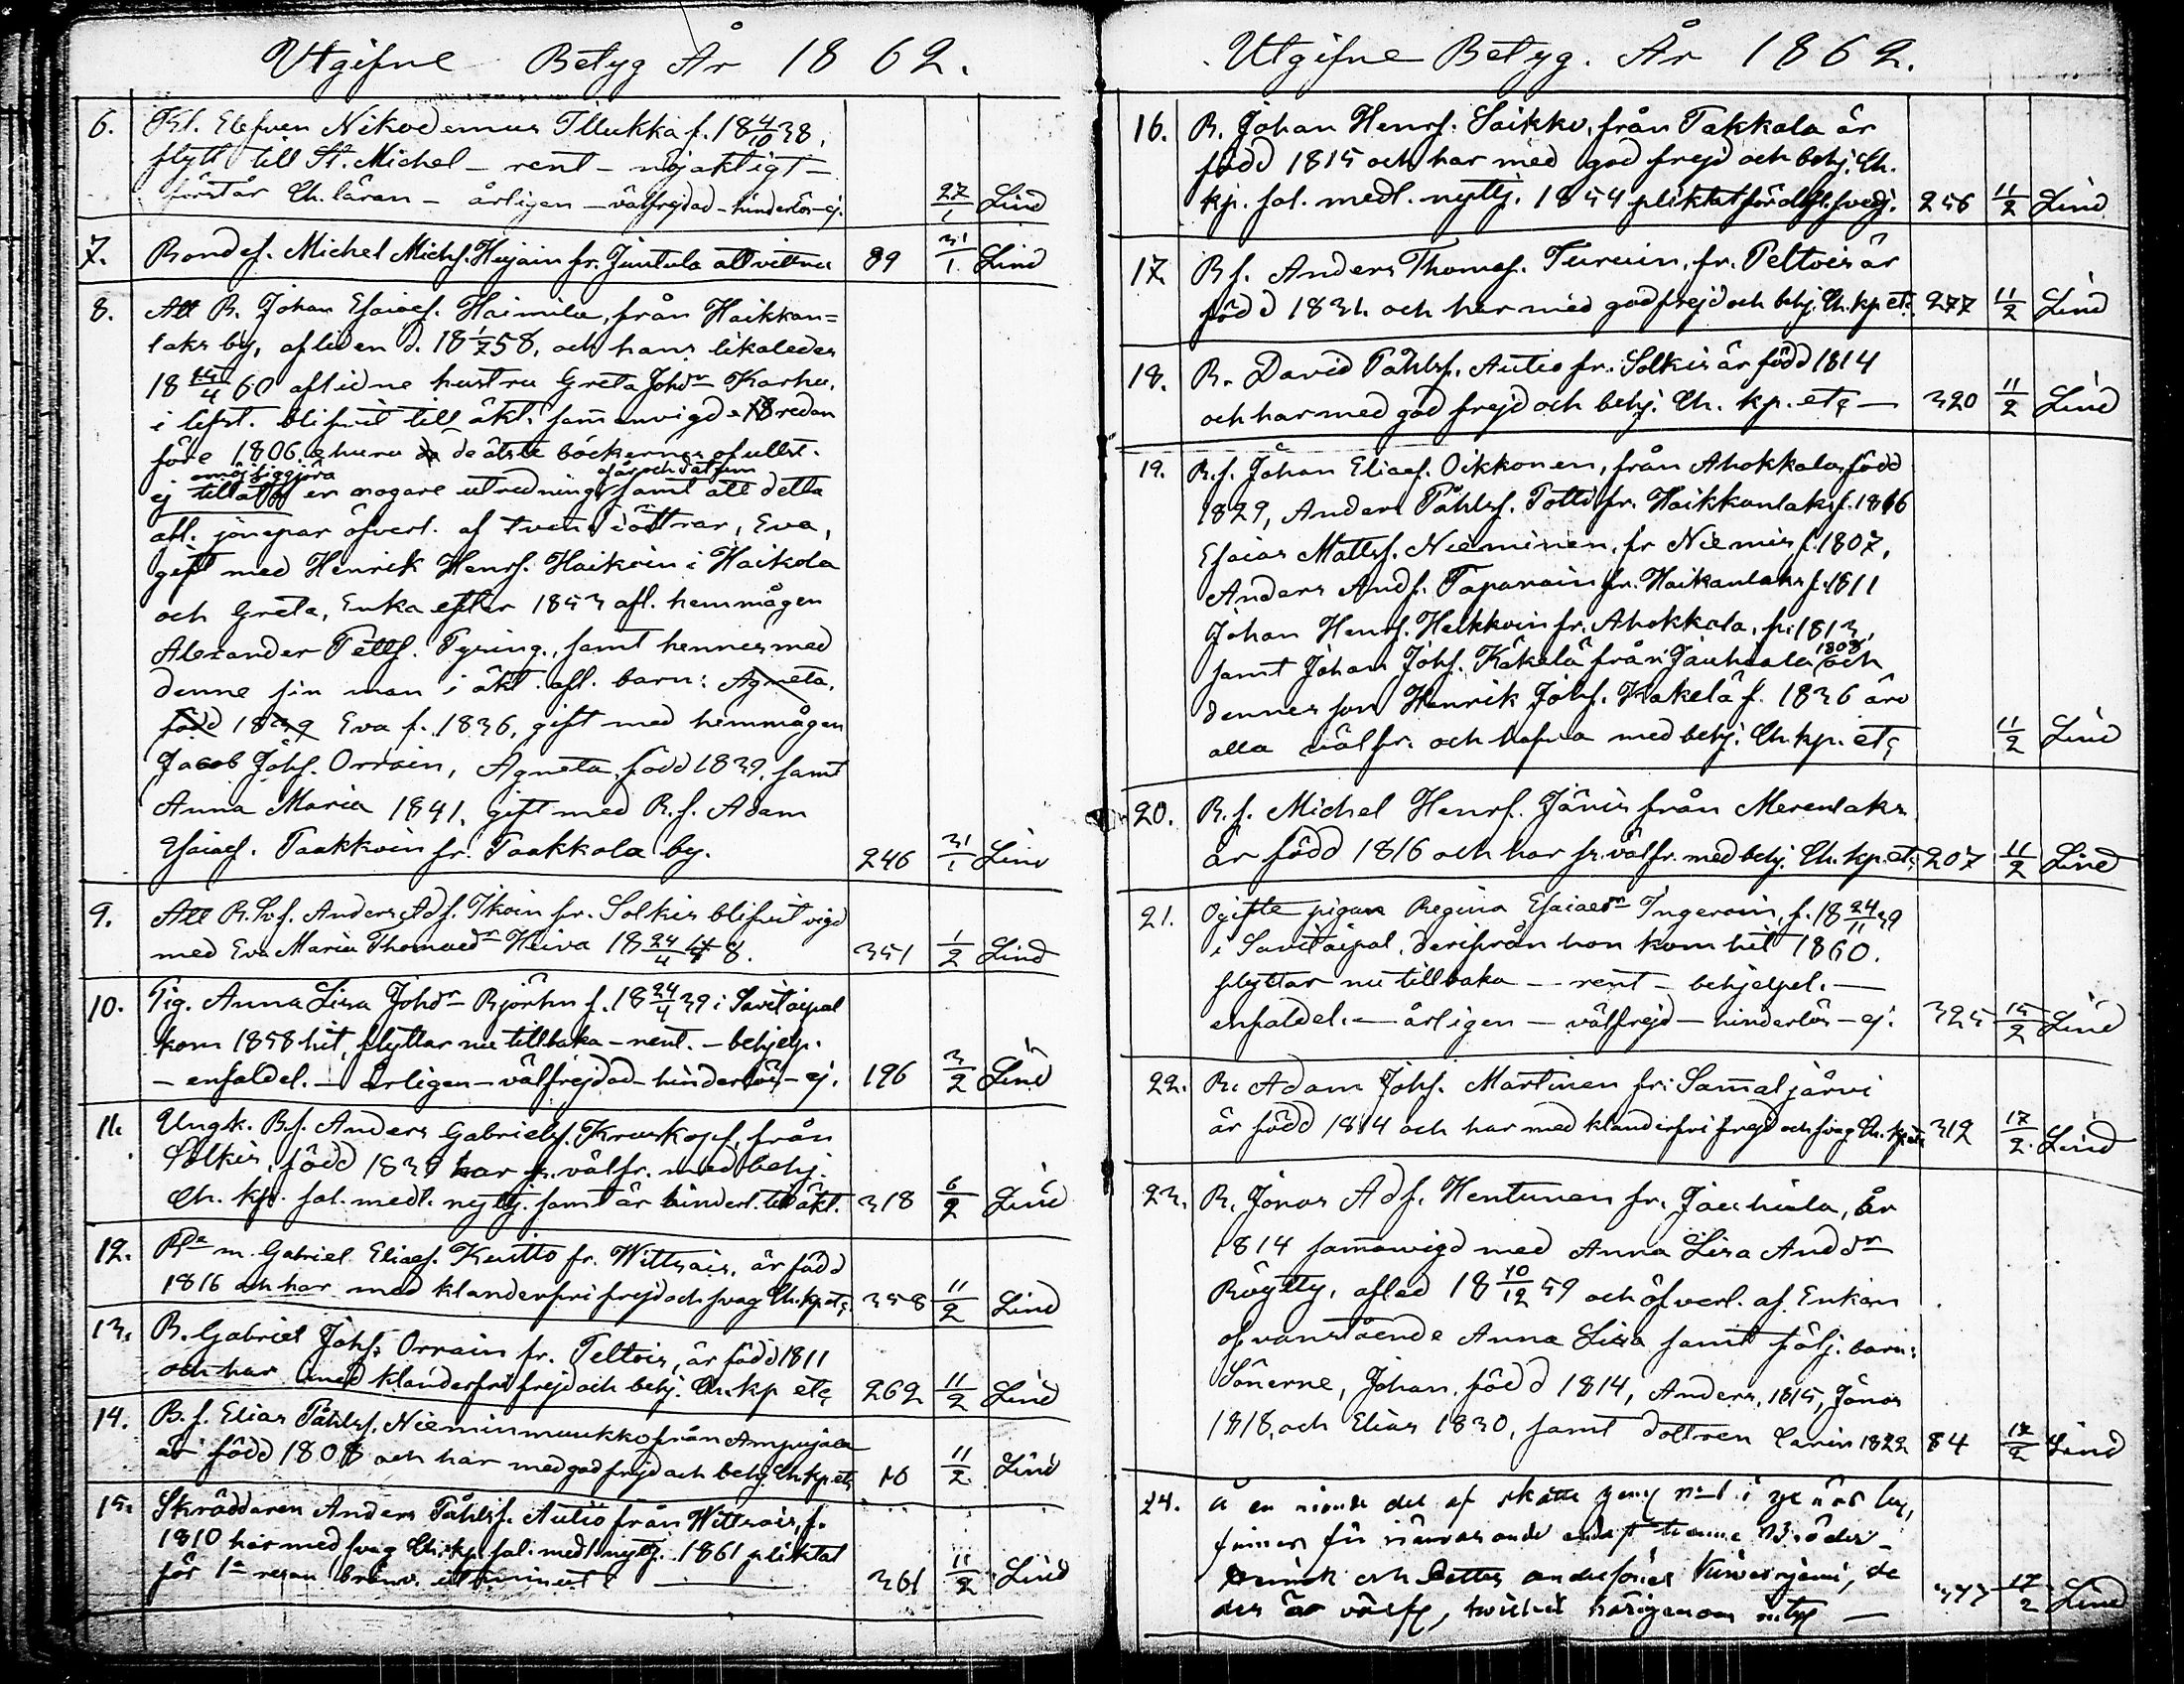 Utgifne Betyg År 1862.
6. Kl. Elefven Nikodemus Illukka f. 18 4/10 38,
flytt till St. Michel – rent – nöjaktigt –
förstår Ch. läran – årligen – välfrejdad – hinderlös – ej. 27/1 Lind
7. Bondes. Michel Michs. Hujain fr. Juntula att vittna 89 31/1 Lind
8. Att B. Johan Esaiaes. Haimila, från Haikkan=
laks by, afliden d. 18 1/7 58, och hans likaledes
18 14/4 60 aflidne hustru Greta Johdr Karhu,
i lefst. blifvit till äkt. sammanvigde redan
före 1806, ehuru de äldste böckernes ofullst.
omöjliggöra af år och datum
ej tillåta en nogare utredning samt att detta
afl. jonepar öfverl. af tvenne döttrar, Eva,
gift med Henrik Henrs. Haikoin i Haikola
och Greta, Enka efter 1853 afl. hemmågen
Alexander Petts. Pyring., samt hennes med
denne sin man i äkt. afl. barn: Agneta,
född 1839 Eva f. 1836, gift med hemmågen
Jacob Johs. Orrain, Agneta, född 1839, samt
Anna Maria 1841, gift med B. s. Adam
Esaiaes. Taakkoin fr. Taakkala by. 246 31/1 Lind
9. Att B. s. Anders Ads. Ikoin fr. Solkis blifvit vigd
med Eva Maria Thomaedr Hiiva 18 24/4 48. 351 1/2 Lind
10. Pig. Anna Lisa Johdr Björhn f. 18 24/4 39 i Savitaipal
kom 1858 hit, flyttar nu tillbaka – rent. – behjelp.
– enfaldel. – årligen – välfrejdad – hinderlös – ej. 196 3/2 Lind
11. Ungk. B.s. Anders Gabriels. Kruskopf, från
Solkis, född 1839 har fr. välfr. med behj.
Ch. kp. sal. medl. nyttj. samt är hinderl. till äkt. 318 6/2 Lind
12. Bde m. Gabriel Eliaes. Kentto fr. Wittsais, är född
1816 och har med klanderfri frejd och svag Ch. kp. etc 358 11/2 Lind
13. B. Gabriel Johs. Orrain fr. Peltois, är född 1811
och har med klanderfri frejd och behj. Ch. kp etc 262 11/2 Lind
14. B. s. Elias Påhls. Nieminmuukko från Ampujala
är född 1808 och har med god frejd och behj. Ch. kp. etc 10 11/2 Lind
15. Skräddaren Anders Påhls. Autio från Wittsais, f.
1810 har med svag Ch. kp. sal. medl. nyttj. 1861 pliktat
för 1a resan bränv. 361 11/2 Lind
Utgifne Betyg. År 1862.
16. B. Johan Henrs. Saikko, från Takkala är
född 1815 och har med god frejd och behj. Ch.
kp. sal. medl. nyttj. 1854 pliktat för svedj. 256 11/2 Lind
17. B s. Anders Thomas. Turuin, fr. Peltois är
född 1831 och har med god frejd och behj. Ch. kp etc 277 11/2 Lind
18. B. David Påhls. Autio fr. Solkis är född 1814
och har med god frejd och behj. Ch. kp. etc – 320 11/2 Lind
19. B.s. Johan Eliaes. Oikkonen, från Ahokkala, född
1829, Anders Påhls. Potti fr. Haikkanlaks f. 1816
Esaias Matts. Nieminen, fr Niemis f. 1807,
Anders Ands. Tapanain fr. Haikanlaks f. 1811
Johan Henrs. Heikkoin fr. Ahokkala, f. 1813,
samt Johan Johs. Käkelä från Jauhiala 1808 och
dennes son Henrik Johs. Käkelä f. 1836 äro
alla välfr. och hafva med behj. Ch. kp. etc 11/2 Lind
20. B. s. Michel Henrs. Jänis från Merenlaks
är född 1816 och har fr. välfr. med behj. Ch. kp. etc 207 11/2 Lind
21. Ogifte pigan Regina Esaiaedr Ingeroin, f. 18 24/11 39
i Savitaipal, derifrån hon kom hit 1860.
flyttar nu tillbaka – rent – behjelpel. –
enfaldel. – årligen – välfrejd – hinderlös – ej. 325 15/2 Lind
22. B. Adam Johs. Martinen fr. Sammaljärvi
är född 1814 och har med klanderfri frejd och svag Ch. kp etc 312 17/2 Lind
23. B. Jonas Ads. Hentunen fr. Jauhiala, är
1814 sammanvigd med Anna Lisa Anddr
Röytty, afled 18 10/12 59 och öfverl. af Enkan
ofvanstående Anna Lisa samt följ. barn:
Sönerne, Johan, född 1814, Anders, 1815, Jonas
1818, och Elias 1830, samt dottren Carin 1822 84 17/2 Lind
24. å en del af skatte No 1 i by,
finnes för närvarande endast tvenne Bröder
Henrik och Petter Anders söner, de
der är välfr., hvilket härigenom intyg – 377 17/2 Lind